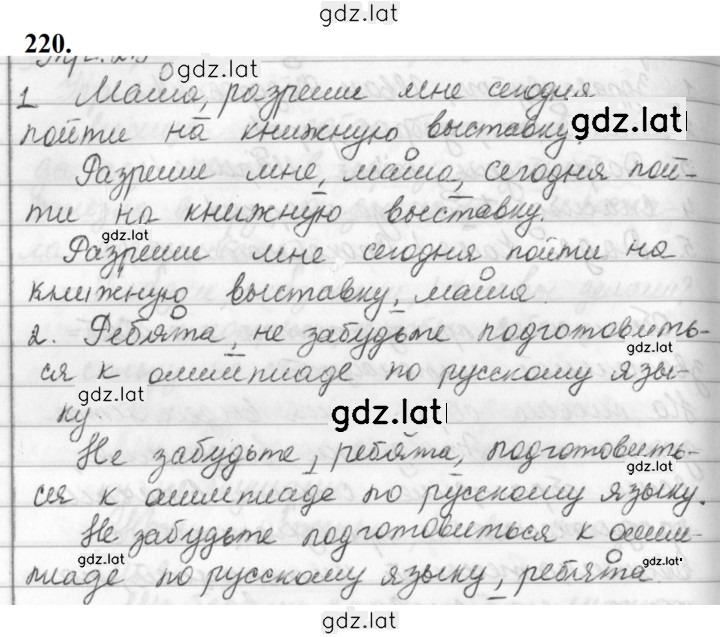 gdz.lat
220.
gdz.lat
1 Маша, разреши мне сегодня
пойти на книжную выставку.
gdz.lat
Разреши мне, маша, сегодня пой-
ти на книжную выставку.
gdz.lat
Разреши мне сегодня пойти на
книжную выставку, маша.
2. Ребята, не забудьте подготовить-
gdz.lat
ся к олимпиаде по русскому язы-
gdz.lat
ку
gdz.lat
Не забудьте, ребята, подготовить-
gdz.lat
ся к олимпиаде по русскому языку.
Не забудьте подготовиться к олим-
gdz.lat
gdz.lat
пиаде по русскому языку, ребята
gdz.lat